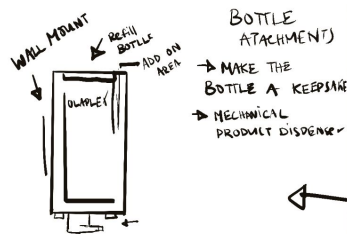 WALL MOUNT
Refill
BOTLLE
ADD ON
AREA
OLAPLEX
BOTTLE
ATACHMENTS
MAKE THE
BOTTLE A KEEPSAKE
MECHANICAL
PRODUCT DISPENSER